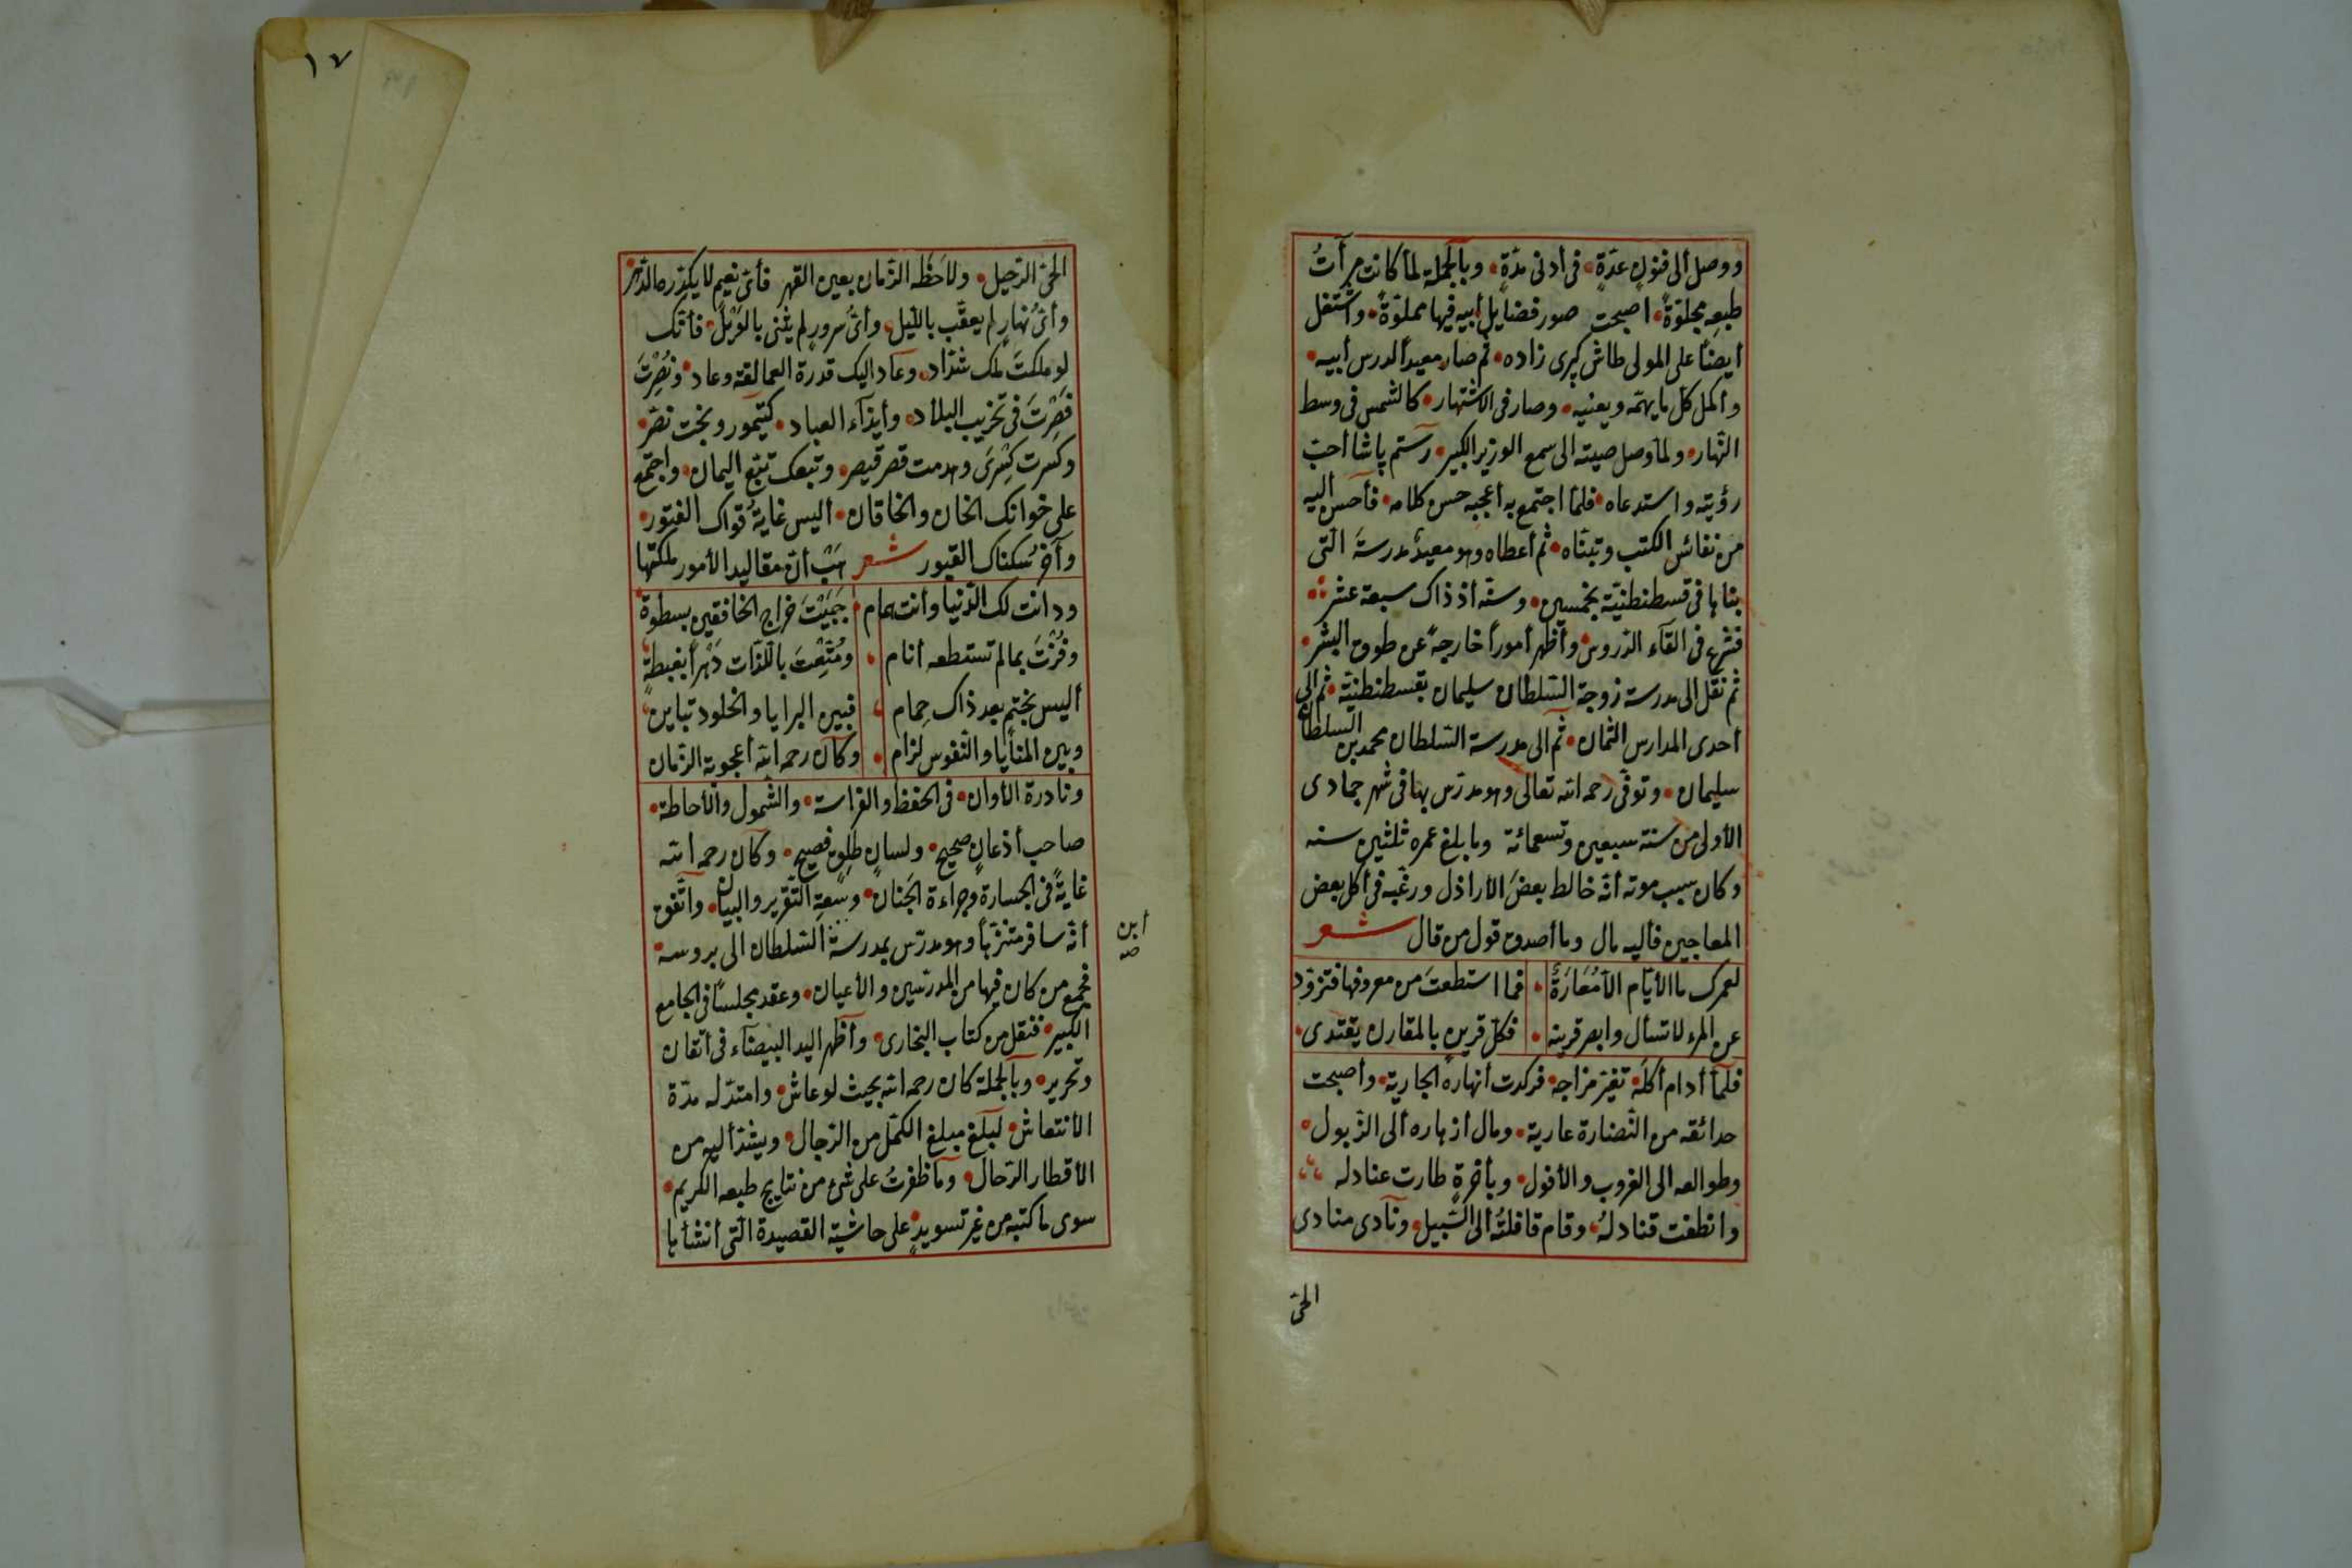 ووصل ألى فنونٍ عدّةٍ • فى أدنى مدّةٍ • وبالجملة لمّا كانت مرآتُ
طبعِه مجلوّةً • اصبحت صور فضايل أبيه فيها مملوّةً • واشتغل
أيضاً على المولى طاش كپرى زاده • ثم صار معيداً لدرس أبيه •
وأكمل كل ما يهمّه ويعنيه • وصار فى الاشتهار • كالشمس فى وسط
النّهار • ولمّا وصل صيته الى سمع الوزير الكبير • رستم پاشا أحبّ
رؤيته واستدعاه • فلمّا اجتمع به أعجبه حسن كلامه • فأحسن أليه
من نفائس الكتب وتبنّاه • ثم أعطاه وهو معيدٌ مدرسةَ الّتى
بناها فى قسطنطنيّة بخمسين • وسنّه أذ ذاك سبعة عشر
فشرع فى القآء الدّروس • وأظهر أموراً خارجةً عن طوق البشر •
ثم نقل الى مدرسة زوجة السّلطان سليمان بقسطنطنيّة • ثم الى
أحدى المدارس الثمان • ثم الى مدرسة السّلطان محمد بن السلطان
سليمان • وتوفّى رحمه الله تعالى وهو مدرّس بها فى شهر جمادى
الأولى من سنة سبعين وتسعمائة وما بلغ عمره ثلثين سنه
وكان سبب موته أنّه خالط بعضَ الأراذل ورغّبه فى أكل بعض
المعاجين فأليه مال وما أصدق قول من قال شعر
لعمرك ما الأيّام الّا مُعَارَةٌ • فما استطعتَ من معروفها فتزوّد
عن المرء لا تسأل وابصر قرينه • فكل قرينٍ بالمقارن يقتدى •
فلمّا أدام أكلَه • تغيّر مزاجه • فركدت أنهاره الجارية • وأصبحت
حدائقه من النّضارة عارية • ومال أزهاره ألى الذّبول •
وطوالعه الى الغروب والأفول • وبأخرةٍ طارت عنادله
وانطفت قنادلهُ • وقام قافلتُه ألى السّبيل • ونادى منادى
الحىّ
١٧
الحىّ الرّحيل • ولاحَظَه الزّمان بعين القهر فأىّ نعيمٍ لا يكدّره الدّهر
وأىّ نهارٍ لم يعقّب بالليل • وأىّ سرورٍ لم يثنى بالوَيْل • فأنّك
لو ملكتَ ملك شدّاد • وعاد اليك قدرة العمالقة وعاد • ونُصِرْتَ
فَصِرْتَ فى تخزيب البلاد • وأيذآء العباد • كتيمور وبخت نصّر •
وكسرت كِسْرَى وهدمت قصر قيصر • وتبعك تبّع اليمان • واجتمع
على خوانك الخان والخاقان • أليس غايةُ قواك الفتور •
وآخر سُكناك القبور شعر هَبْ أنّ مقاليد الأمور ملكتها
ودانت لك الدّنيا وأنت همام • جَبَيْتَ خراج الخافقين بسطوة
وفُزْتَ بما لم تستطعه أنام • ومُتِّعْتَ باللّذّات دَهْراً بغبطةٍ
أليس بختمٍ بعد ذاك حِمام • فبين البرايا والخلود تباينٌ
وبين المنايا والنّفوس لزام • وكان رحمه الله أعجوبة الزّمان
ونادرة الأوان • فى الحفظ والفراسة • والشّمول والأحاطة •
صاحب أذعانٍ صحيح • ولسانٍ طلِقٍ فصيح • وكان رحمه الله
غايةً فى الجسارة وجراءة الجَنان • وسعةِ التّقرير والبيان • واتّفق
أنّه سافر متنزّهاً وهو مدرّس بمدرسة السّلطان الى بروسه •
أبن
صه
فجمع من كان فيها من المدرّسين والأعيان • وعقد مجلسًا فى الجامع
الكبير • فنقل من كتاب البخارى • وأظهر اليد البيضآء فى أتقان
وتحرير • وبالجملة كان رحمه الله بحيث لو عاش • وامتدّ له مدّة
الأنتعاش • لبلغ مبلغ الكمّل من الرّجال • ويشدّ أليه من
الأقطار الرّحال • وما ظفرتُ على شئ من نتايج طبعه الكريم •
سوى ما كتبه من غير تسويدٍ على حاشية القصيدة الّتى أنشأها